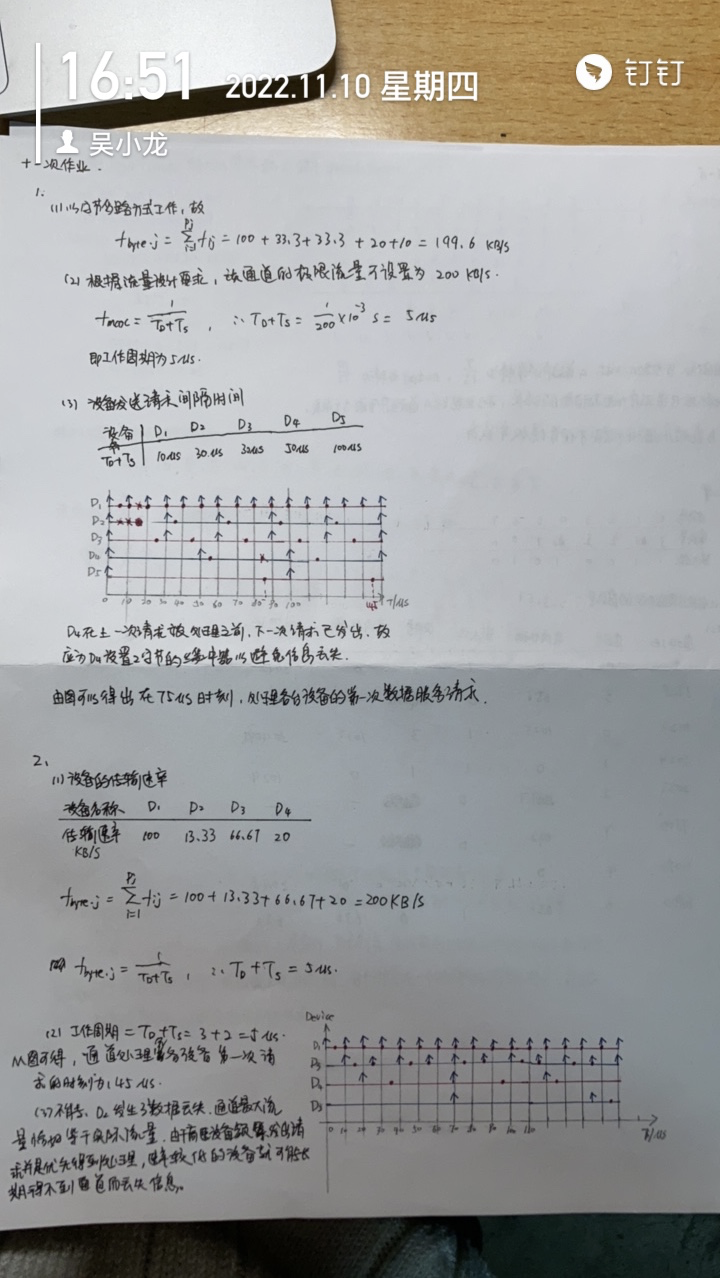 16:51
2022.11.10 星期四
钉钉
吴小龙
十一次作业.
1.
(1) 以字节多路方式工作, 故
f_byte.j = Σ_{i=1}^{Pj} f_ij = 100 + 33.3 + 33.3 + 20 + 10 = 199.6 KB/S
(2) 根据流量设计要求, 该通道的极限流量可设置为 200 KB/S.
f_max = 1/(T_D+T_S) , ∴ T_D+T_S = 1/200 ×10^-3 s = 5us
即工作周期为5us.
(3) 设备发送请求间隔时间
设备 D1 D2 D3 D4 D5
T_D+T_S 10us 30us 30us 50us 100us
D1
D2
D3
D4
D5
0 10 20 30 40 50 60 70 80 90 100 145 T/us
D4在上一次请求被处理之前, 下一次请求已发出. 故
应为D4设置2字节的缓冲器以避免信息丢失.
由图可以得出在75us时刻, 处理各台设备的第一次数据服务请求.
2.
(1) 设备的传输速率
设备名称 D1 D2 D3 D4
传输速率 100 13.33 66.67 20
KB/S
f_byte.j = Σ_{i=1}^{Pj} f_ij = 100 + 13.33 + 66.67 + 20 = 200 KB/S
f_byte.j = 1/(T_D+T_S) , ∴ T_D + T_S = 5us.
(2) 工作周期 = T_D + T_S = 3 + 2 = 5us.
从图可得, 通道处理各设备第一次请
求的时刻为: 45us.
(3) 不能, D2发生了数据丢失, 通道最大流
量
求并是优先得到处理, 速率较低的设备就可能长
期得不到通道而丢失信息.
Device
D1
D3
D4
D2
0 10 20 30 40 50 60 70 80 90 100 110
T/us